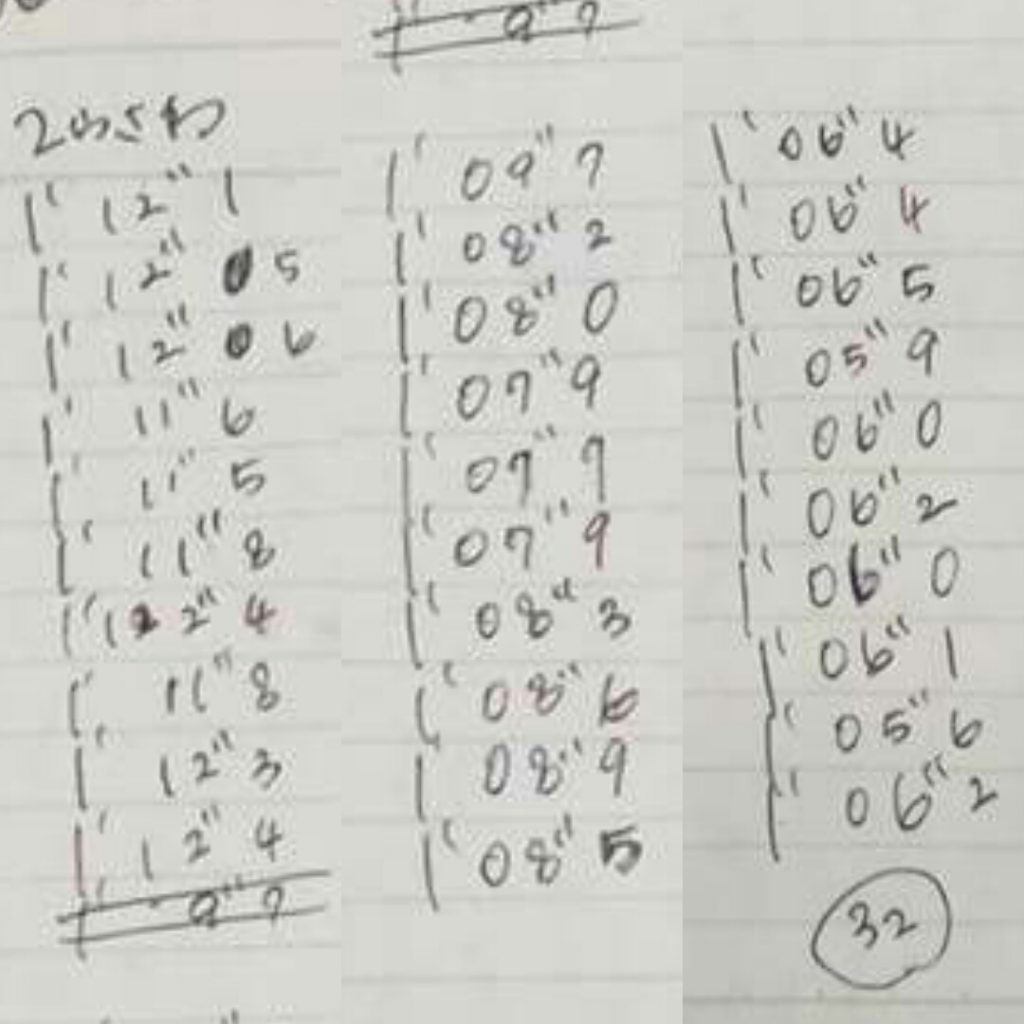 1' 12" 1
1' 12" 5
1' 12" 6
1' 11" 6
1' 11" 5
1' 11" 8
1' 12" 4
1' 11" 8
1' 12" 3
1' 12" 4
1' 09" 7
1' 08" 2
1' 08" 0
1' 07" 9
1' 07" 7
1' 07" 9
1' 08" 3
1' 08" 6
1' 08" 9
1' 08" 5
1' 06" 4
1' 06" 4
1' 06" 5
1' 05" 9
1' 06" 0
1' 06" 2
1' 06" 0
1' 06" 1
1' 05" 6
1' 06" 2
32